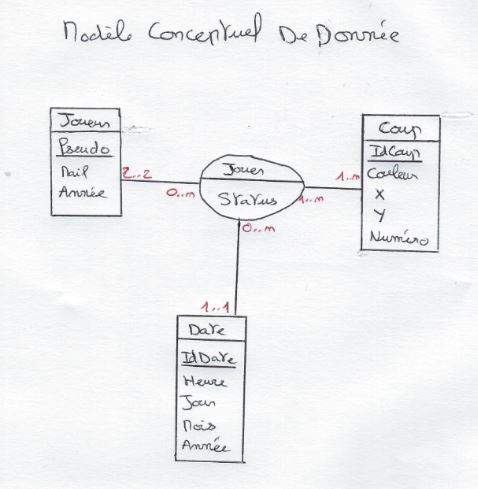 Modèle Conceptuel De Donnée
Joueur
Pseudo
Mail
Année
2..2
0..n
Jouer
Status
1..n
1..n
Coup
IdCoup
Couleur
X
Y
Numéro
0..n
1..1
Date
IdDate
Heure
Jour
Mois
Année